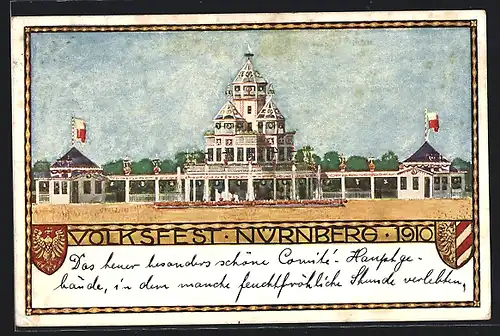 VOLKSFEST · NÜRNBERG · 1910
Das heuer besonders schöne Comité-Hauptge-
bäude, in dem manche feuchtfröhliche Stunde verlebten,